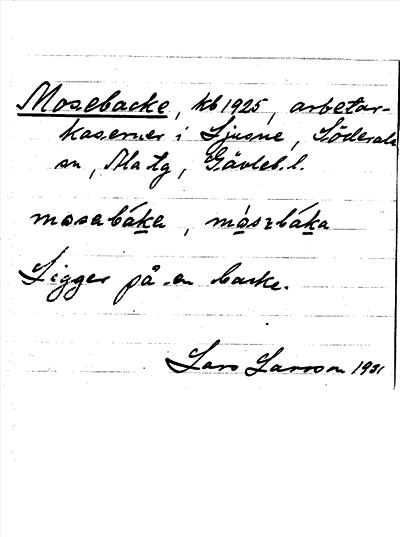 Mosebacke, kb 1925, arbetar-
kaserner i Ljusne, Söderala
sn, Ala tg, Gävleb. l.
mosebáka, mósebáka
Ligger på en backe.
Lars Larsson 1931